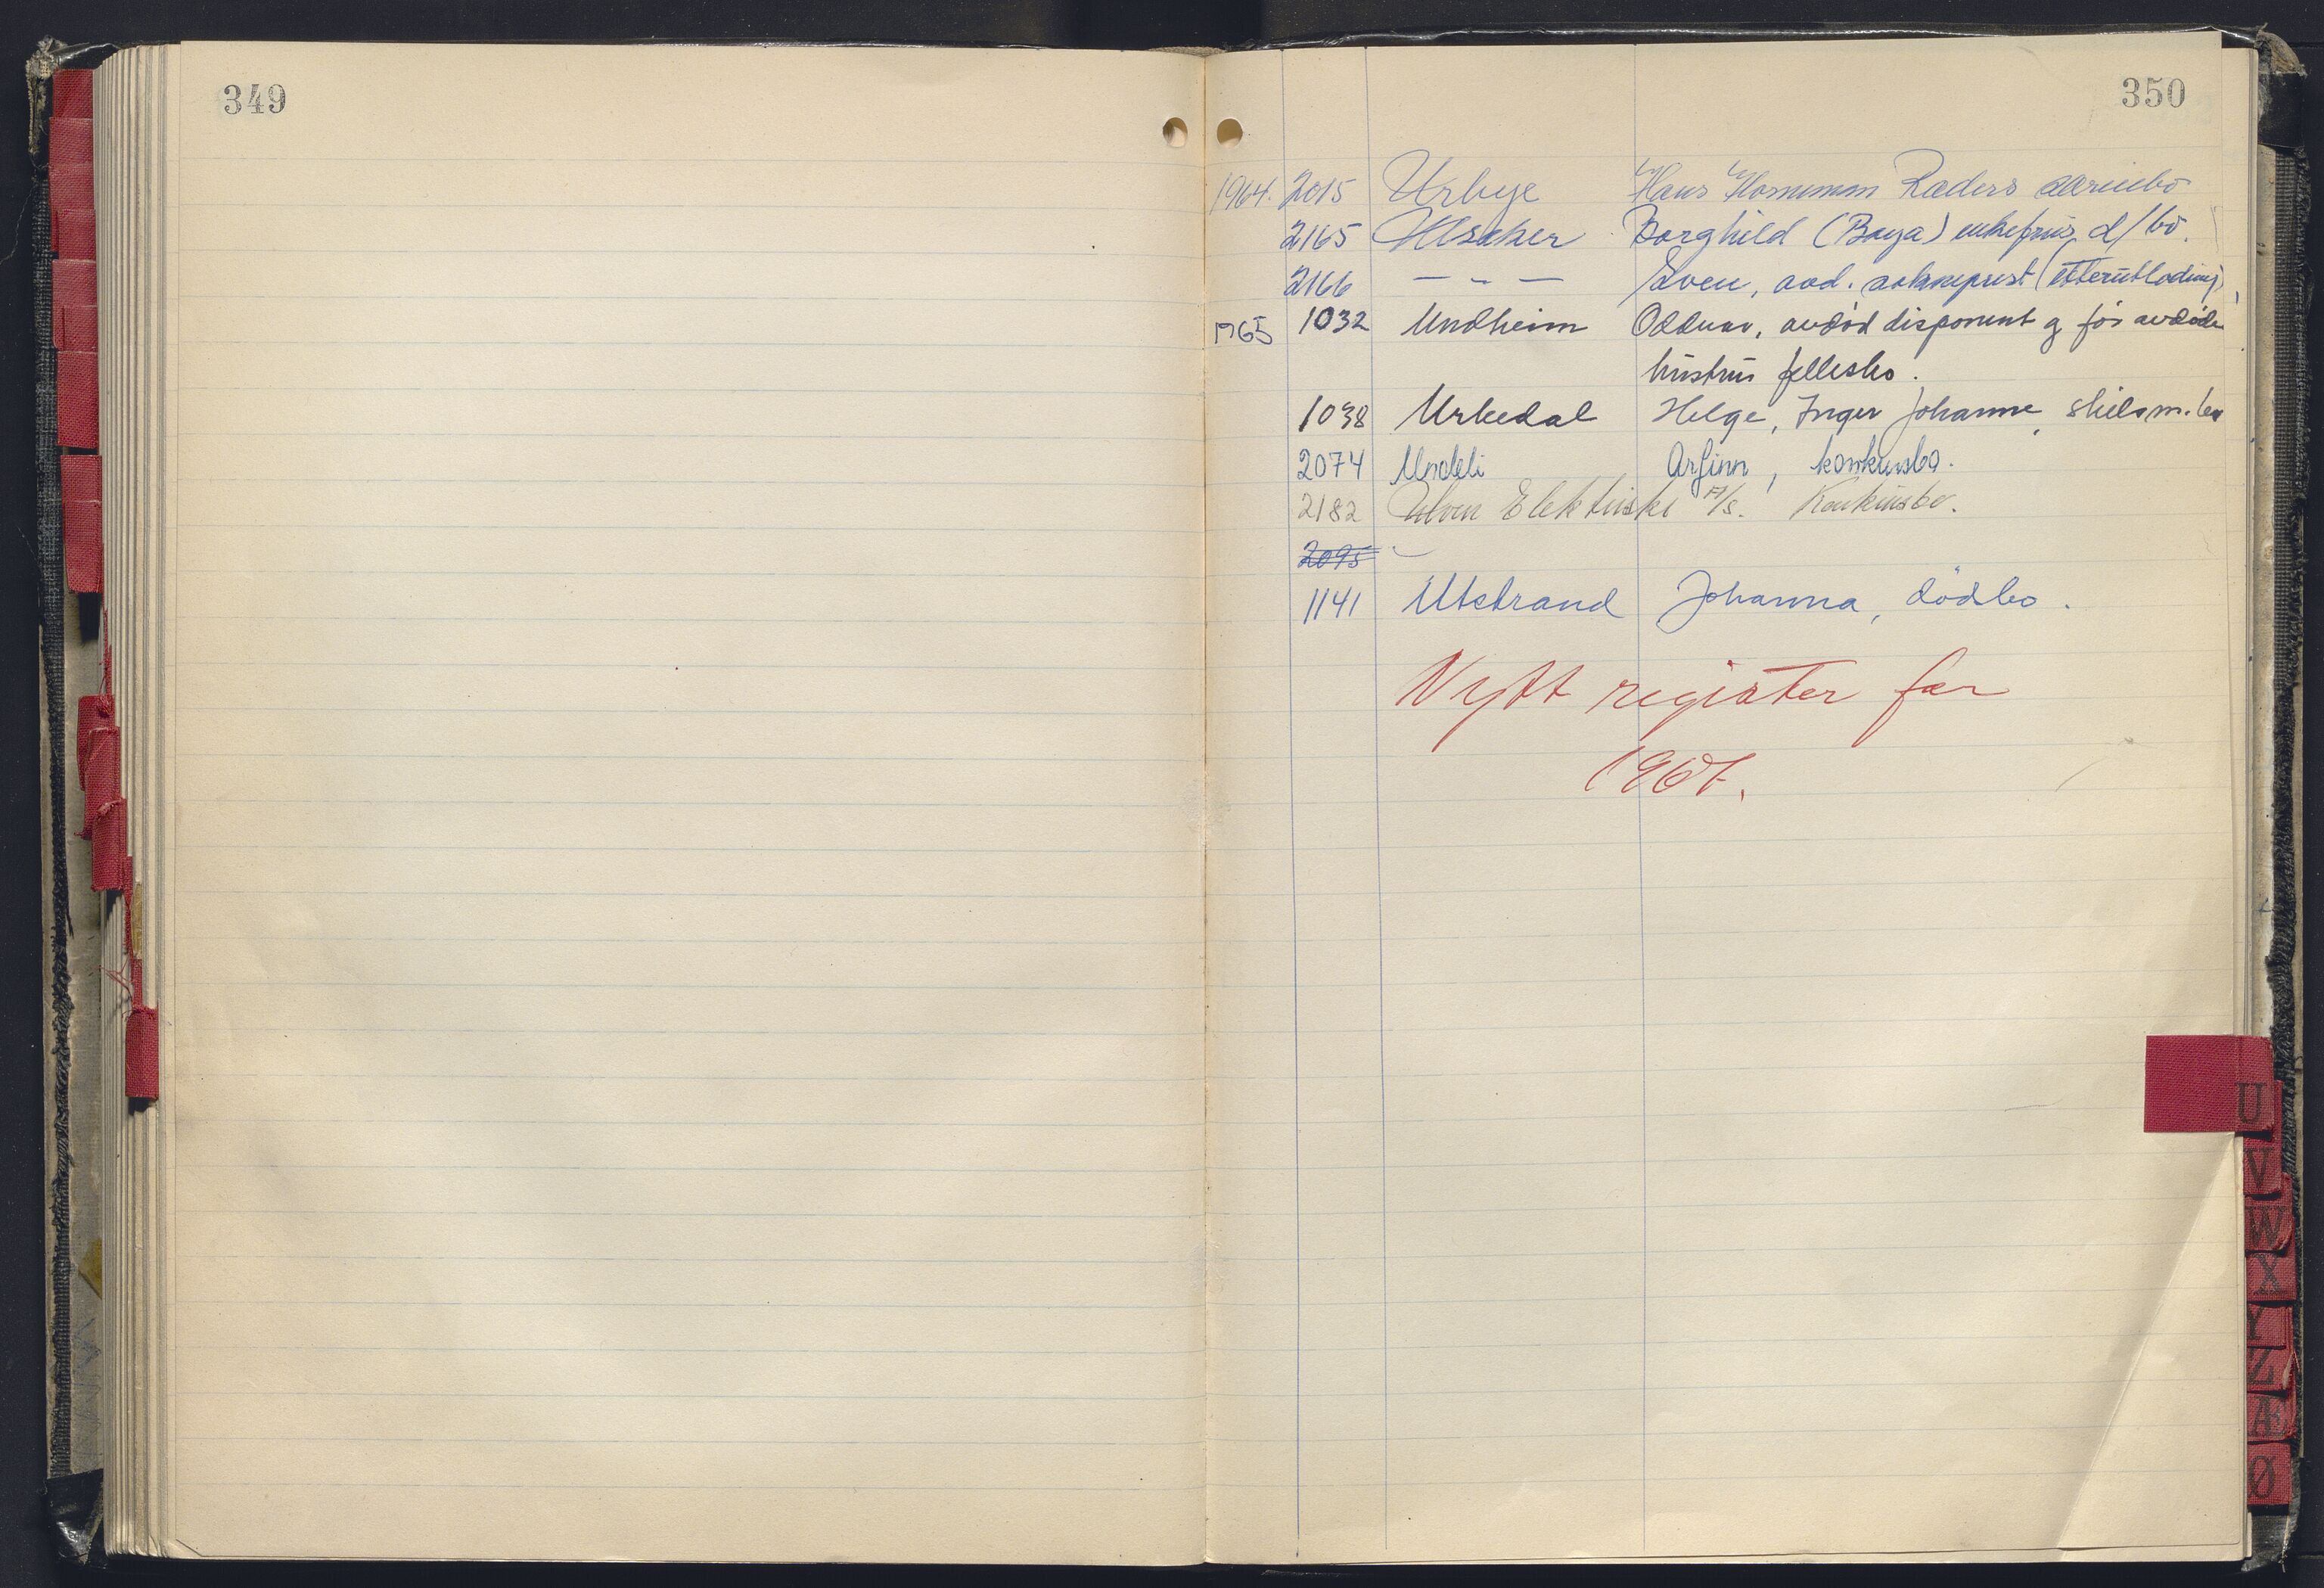 349
350
1964. 2015 Urbye Hans Hornemann Ræders særiebo
2165 Ulsaker Borghild (Baya) enkefrus d/bo.
2166 — " — Sven, avd. sokneprest (etterutlodning)
1965 1032 Undheim Oddvar, avdød disponent og før avdøde
hustrus fellesbo.
1038 Urkedal Helge, Inger Johanne, skilsm.bo
2074 Undeli Arfinn, konkursbo.
2182 Ulven Elektriske A/s. Konkursbo.
2095
1141 Utstrand Johanna, dødbo.
Nytt register for
1967.
U
V
W
X
Y
Z
Æ
Ø